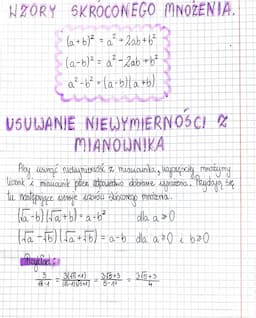 WZORY SKRÓCONEGO MNOŻENIA.
(a+b)² = a² + 2ab + b²
(a-b)² = a² - 2ab + b²
a² - b² = (a-b)(a+b)
USUWANIE NIEWYMIERNOŚCI Z
MIANOWNIKA
Aby usunąć niewymierność z mianownika, najczęściej mnożymy
licznik i mianownik przez odpowiednio dobrane wyrażenie. Przydają się
tu następujące wersje wzorów skróconego mnożenia.
(√a - b)(√a + b) = a - b² dla a ≥ 0
(√a - √b)(√a + √b) = a - b dla a ≥ 0 i b ≥ 0
Przykład: